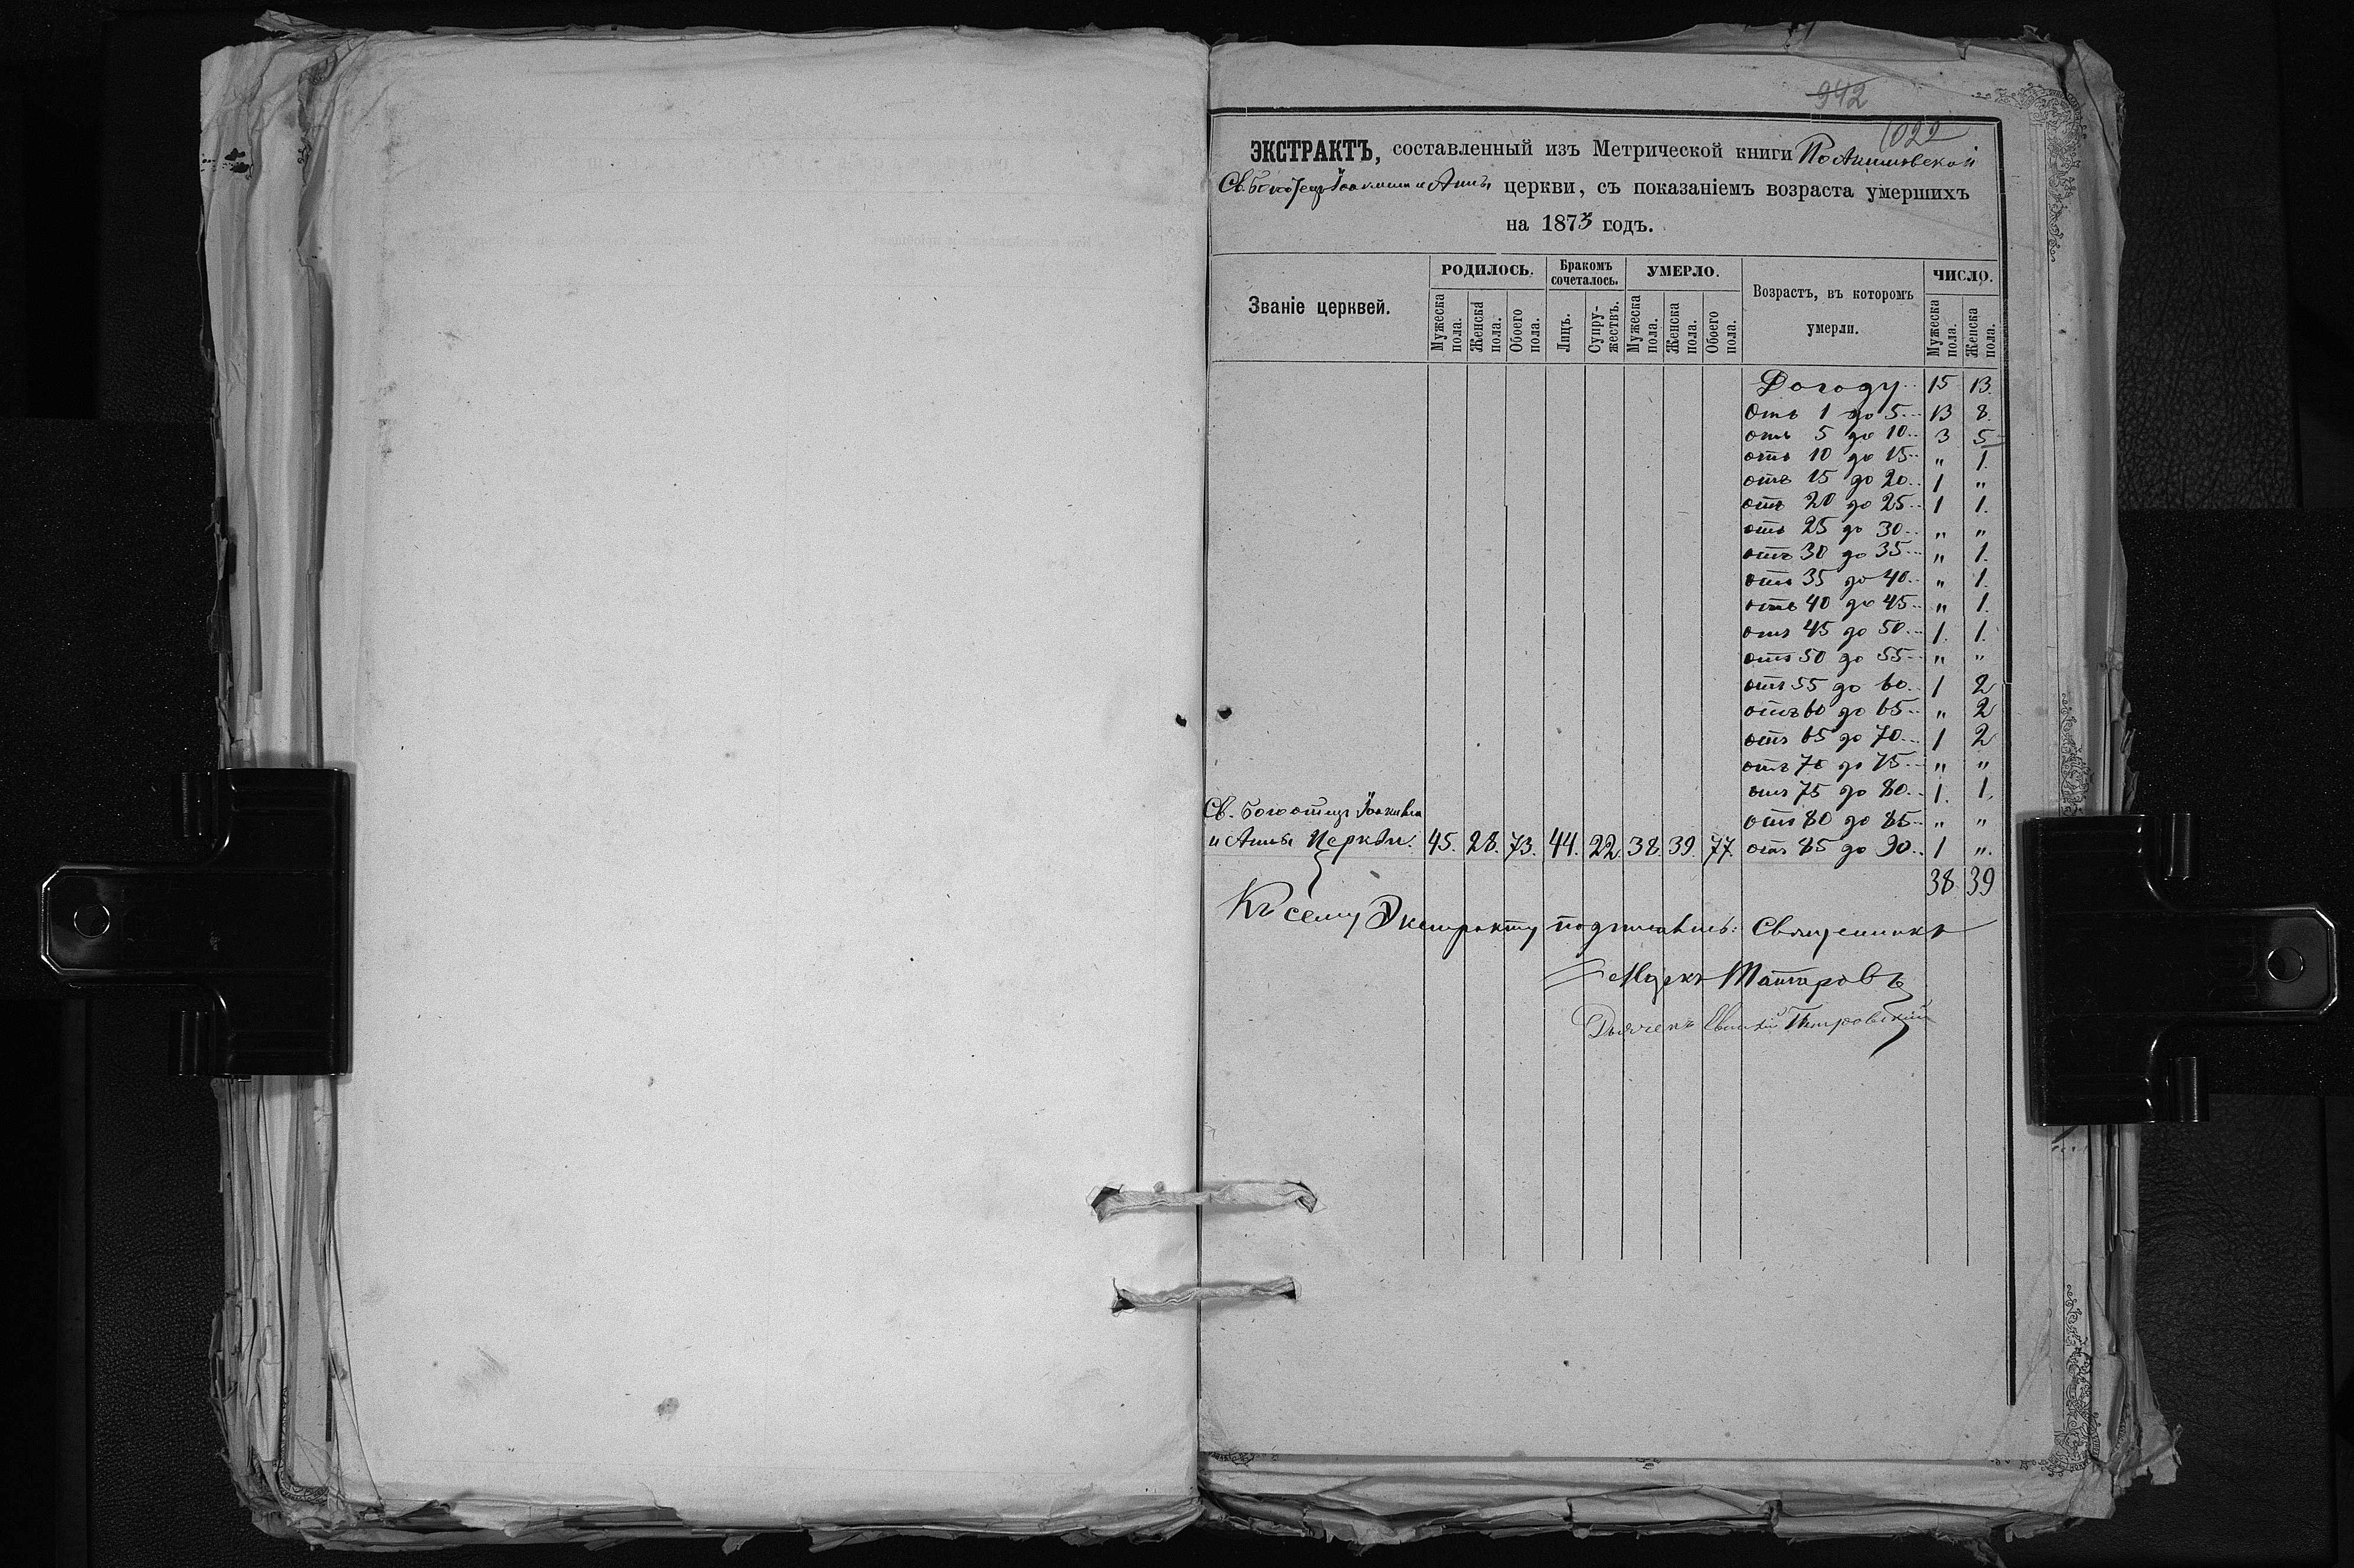 942
1022
ЭКСТРАКТЪ, составленный изъ Метрической книги
Св. Богоотецъ Іоакима и Анны церкви, съ показаніемъ возраста умершихъ
на 1873 годъ.
Званіе церквей.
РОДИЛОСЬ.
Мужеска пола.
Женска пола.
Обоего пола.
Бракомъ сочеталось.
Лицъ.
Супружествъ.
УМЕРЛО.
Мужеска пола.
Женска пола.
Обоего пола.
Возрастъ, въ которомъ
умерли.
ЧИСЛО.
Мужеска пола.
Женска пола.
До году 15 13
Отъ 1 до 5 13 8
отъ 5 до 10 3 5
отъ 10 до 15 " 1
отъ 15 до 20 1 "
отъ 20 до 25 1 1
отъ 25 до 30 " "
отъ 30 до 35 " 1
отъ 35 до 40 " 1
отъ 40 до 45 " 1
отъ 45 до 50 1 1
отъ 50 до 55 " "
отъ 55 до 60 1 2
отъ 60 до 65 " 2
отъ 65 до 70 1 2
отъ 70 до 75 " "
отъ 75 до 80 1 1
отъ 80 до 85 " "
Св. Богоотецъ Іоакима
и Анны Церкви. 45. 28. 73. 44. 22. 38. 39. 77. отъ 85 до 90 1 "
38 39
Къ сему Экстракту подписались: Священникъ
Маркъ
Дьячекъ